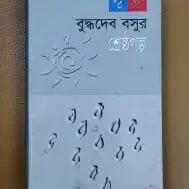 বুদ্ধদেব বসুর
শ্রেষ্ঠগল্প